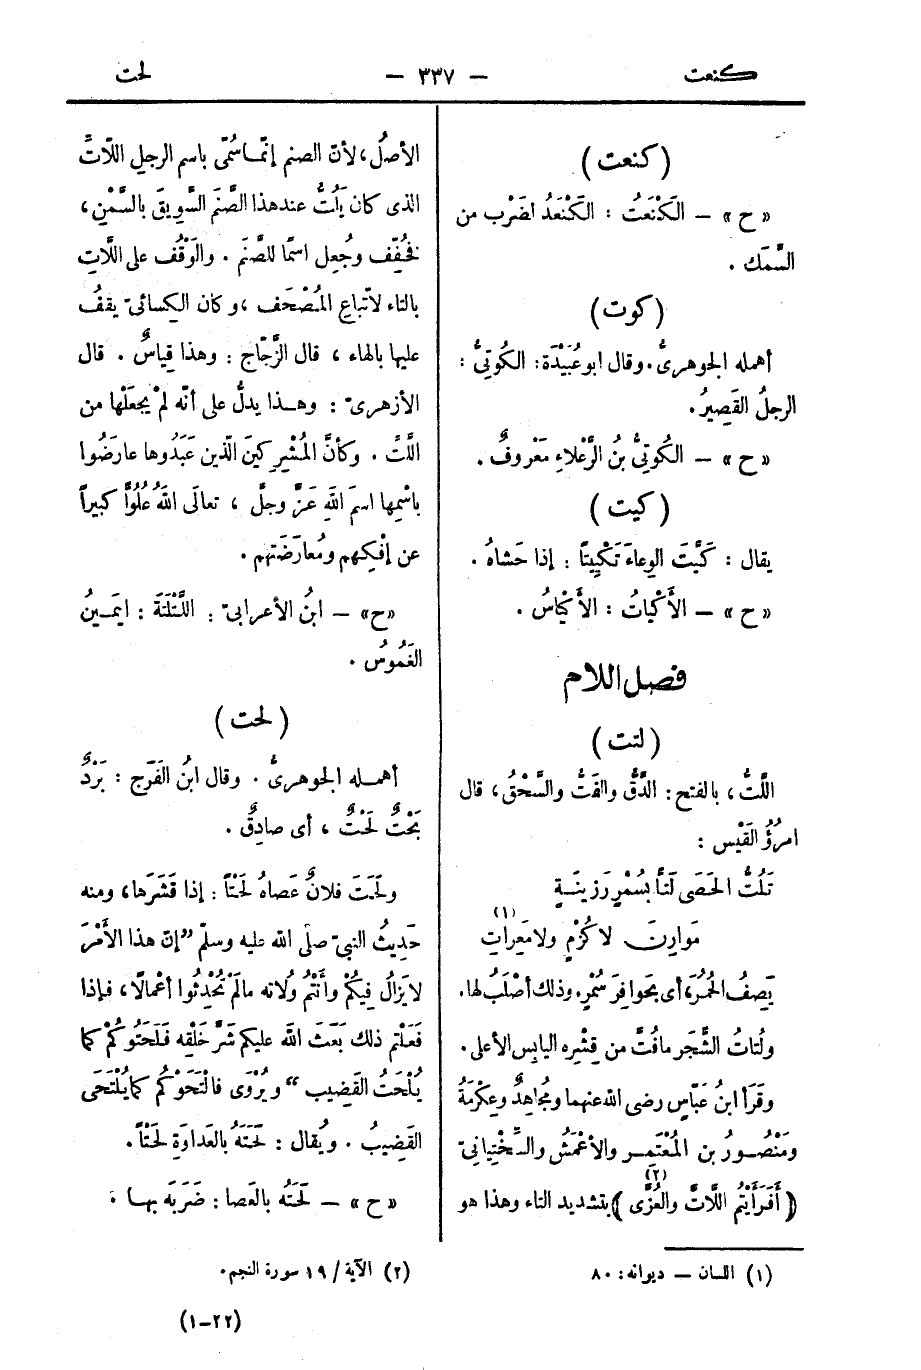 كنعت — ٣٣٧ — لحت
(كنعت)
«ح» — الكَنْعَتُ : الكَنْعَدُ لضَرْب من
السَّمَك .
(كوت)
أهمله الجوهرىُّ. وقال ابو عُبَيْدَة: الكُوتِىُّ :
الرجلُ القَصِيرُ.
«ح» — الكُوتِىُّ بنُ الرَّعْلاءِ مَعْروفٌ .
(كيت)
يقال : كَيَّتَ الوِعاءَ تَكْيِيتًا : إذا حَشاهُ .
«ح» — الأَكْياتُ : الأَكْياسُ .
فصل اللام
(لتت)
اللَّتُّ، بالفتح : الدَّقُّ والفَتُّ والسَّحْقُ، قال
امرُؤُ القَيْس :
تَلُتُّ الحَصَى لَتًّا بسُمْرٍ رَزِينَةٍ
مَوارِنَ لا كُزْمٍ ولا مَعِراتِ (١)
يَصِفُ الحُمُرَ، أى بحَوافِرَ سُمْرٍ. وذلك أصْلَبُ لها.
ولُتاتُ الشَّجَر مافُتَّ من قِشْرِه اليابِس الأعلى .
وقَرَأ ابنُ عَبّاسٍ رضى الله عنهما ومُجاهِدٌ وعِكْرَمَةُ
ومَنْصُورُ بن المُعْتَمِر والأعْمَشُ والسَّخْتِيانىّ
(أَفَرَأَيْتُم اللَّاتَّ والعُزَّى) (٢) بتشديد التاء وهذا هو
الأصلُ، لأنّ الصنم إنّما سُمّى باسم الرجل اللَّاتِّ
الذى كان يَلُتُّ عند هذا الصَّنَم السَّوِيقَ بالسَّمْنِ،
فخُفِّف وجُعِل اسمًا للصَّنَم . والوَقْفُ على اللَّاتِ
بالتاء لاتّباعِ المُصْحَف ، وكان الكسائىّ يقفُ
عليها بالهاء ، قال الزَّجّاج : وهذا قِياسٌ . قال
الأزهرىّ : وهـذا يدلُّ على أنّه لمْ يجعَلْها من
اللَّتِّ . وكأنَّ المُشْرِكِينَ الّذين عَبَدُوها عارَضُوا
باسْمِها اسمَ اللهِ عَزَّ وجلَّ ، تعالَى اللهُ عُلُوًّا كبيراً
عن إفْكِهم ومُعارَضَتِهم .
«ح» — ابنُ الأعرابىّ : اللَّتْلَتَةُ : ايمَـينُ
الغَمُوسُ .
(لحت)
أهمـله الجوهرىُّ . وقال ابنُ الفَرَج : بَرْدٌ
بَحْتٌ لَحْتٌ ، أى صادِقٌ .
ولَحَتَ فلانٌ عَصاهُ لَحْتًا : إذا قَشَرَها، ومنه
حَدِيثُ النبىّ صلَّى الله عليه وسلّم "إنّ هذا الأمْرَ
لا يَزالُ فِيكُمْ وأَنْتُم وُلاته مالَمْ تُحْدِثُوا أعْمالًا، فـإذا
فَعَلْتم ذلك بَعَثَ الله عليكم شَرَّ خَلْقِه فَلَحَتُوكُمْ كما
يُلْحَتُ القَضِيب" ويُرْوَى فالْتَحَوْكُم كما يُلْتَحَى
القَضِيبُ . ويُقال : لَحَتَهُ بالعَداوَةِ لَحْتًا.
«ح» — لَحَتَهُ بالعَصا : ضَرَبَه بهـا .
(١) اللسان — ديوانه: ٨٠
(٢) الآية / ١٩ سورة النجم.
(٢٢-١)